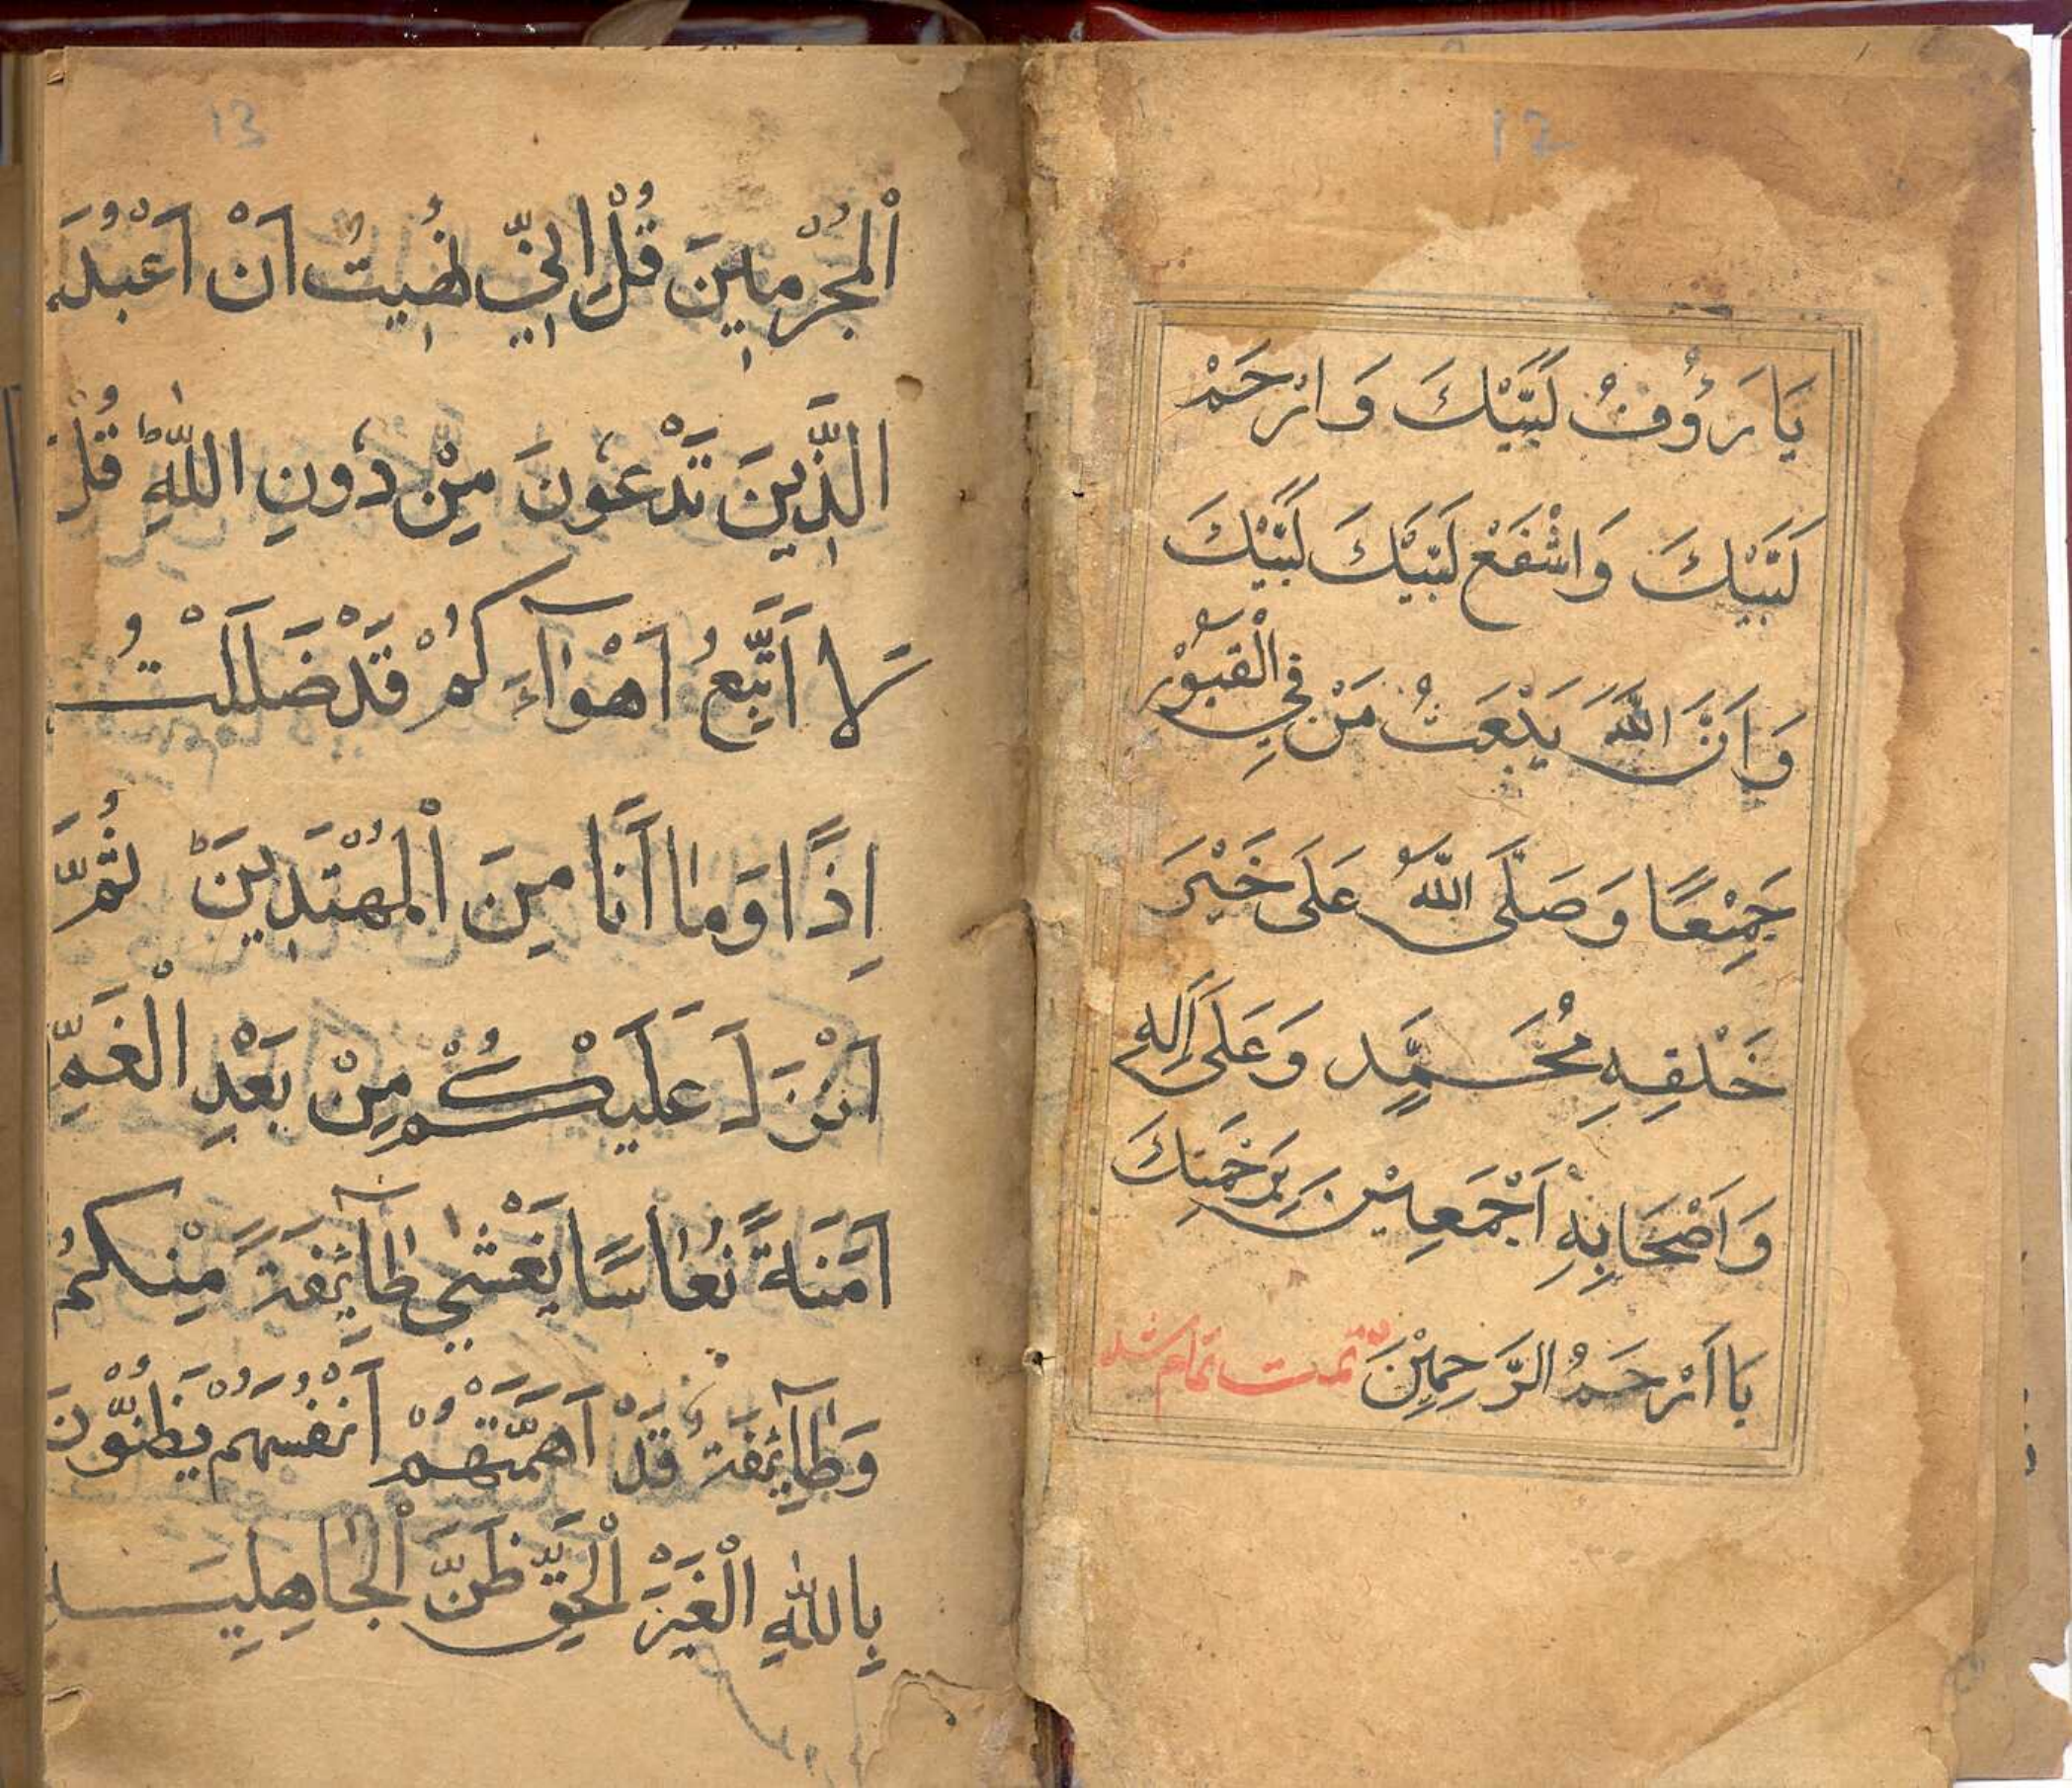 12
يَا رَؤُوفُ لَبَّيْكَ وَارْحَمْ
لَبَّيْكَ وَاشْفَعْ لَبَّيْكَ لَبَّيْكَ
وَاَنَّ اللّٰهَ يَبْعَثُ مَنْ فِي الْقُبُوْرِ
جَمِيْعًا وَصَلَّى اللّٰهُ عَلَى خَيْرِ
خَلْقِهِ مُحَمَّدٍ وَعَلَى اٰلِهِ
وَاَصْحَابِهِ اَجْمَعِيْنَ بِرَحْمَتِكَ
يَا اَرْحَمَ الرَّحِمِيْنَ تمت تمام شد
13
الْمُجْرِمِينَ قُلْ اِنِّي نُهِيتُ اَنْ اَعْبُدَ
الَّذِينَ تَدْعُونَ مِنْ دُونِ اللّٰهِ ط قُلْ
لَا اَتَّبِعُ اَهْوَآءَكُمْ قَدْ ضَلَلْتُ
اِذًا وَمَا اَنَا مِنَ الْمُهْتَدِينَ ط ثُمَّ
اَنْزَلَ عَلَيْكُمْ مِنْ بَعْدِ الْغَمِّ
اَمَنَةً نُعَاسًا يَغْشٰي طَآئِفَةً مِنْكُمْ
وَطَآئِفَةٌ قَدْ اَهَمَّتْهُمْ اَنْفُسُهُمْ يَظُنُّونَ
بِاللّٰهِ الْغَيْرَ الْحَقِّ ظَنَّ الْجَاهِلِيَّةِ